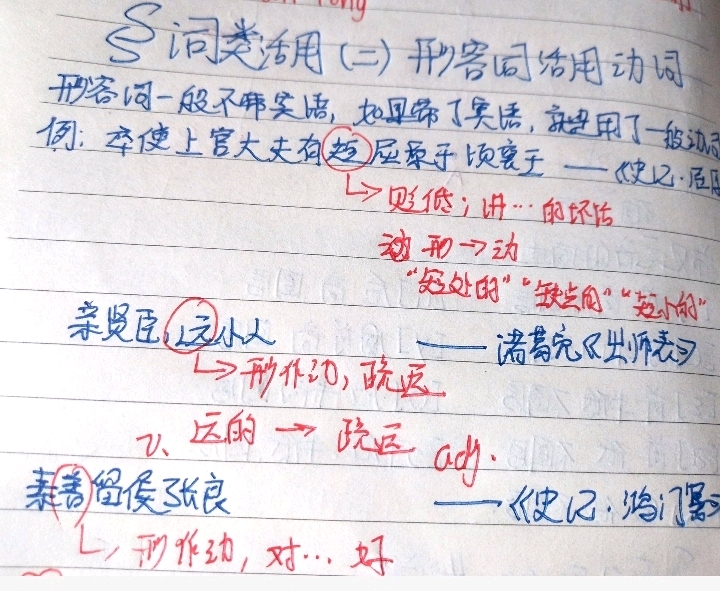 § 词类活用（二）形容词活用动词
形容词一般不带宾语，如果带了宾语，就是用了一般动词
例：卒使上官大夫有短屈原于顷襄王 ——《史记·屈原
↳ 贬低；讲…的坏话
动 形→动
“短处的”“缺点的”“短小的”
亲贤臣，远小人 —— 诸葛亮《出师表》
↳ 形作动，疏远
v、远的 → 疏远 adj.
素善留侯张良 ——《史记·鸿门宴》
↳ 形作动，对… 好